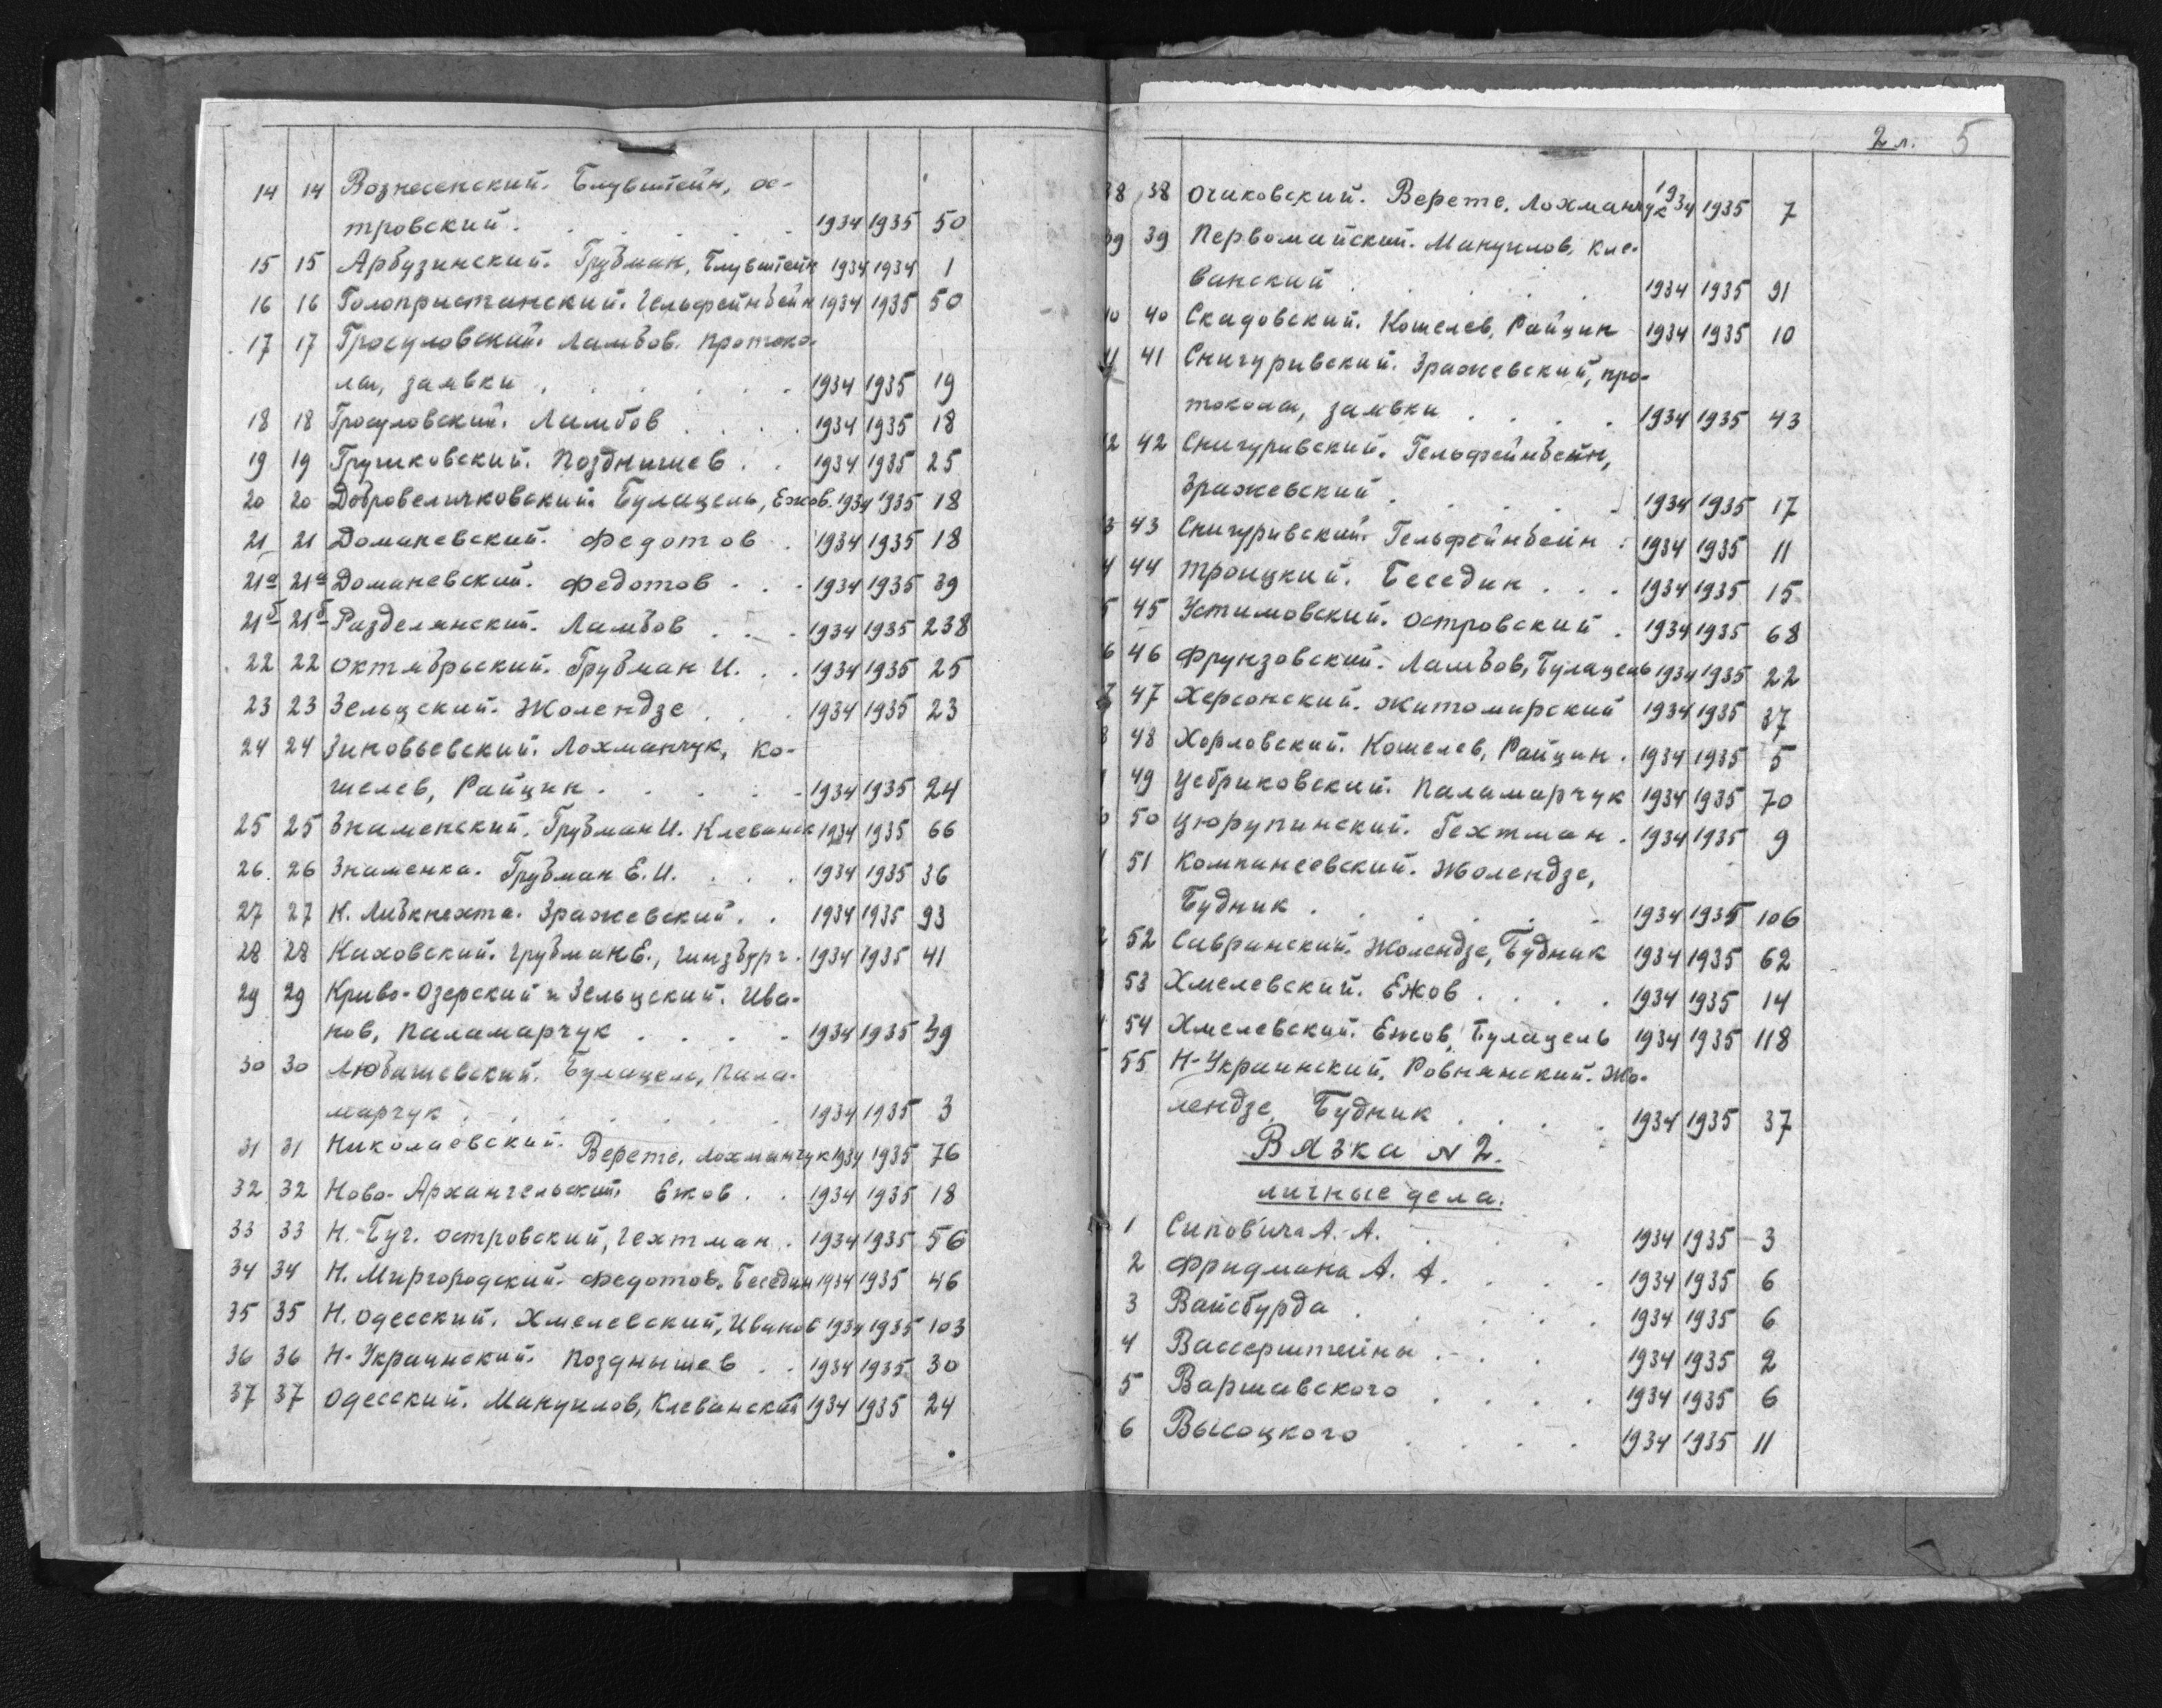 14 14 Вознесенский. Блувштейн, ос-
тровский. 1934 1935 50
15 15 Арбузинский. Грубман, Блувштейн 1934 1934 1
16 16 Голопристанский. Гельфейнбейн 1934 1935 50
17 17 Гросуловский. Ламбов. протоко-
лы, заявки 1934 1935 19
18 18 Гросуловский. Ламбов 1934 1935 18
19 19 Грушковский. Позднышев 1934 1935 25
20 20 Добровеличковский. Булацель, Ежов. 1934 1935 18
21 21 Доманевский. Федотов 1934 1935 18
21а 21а Доманевский. Федотов 1934 1935 39
21б 21б Разделянский. Ламбов 1934 1935 238
22 22 Октябрьский. Грубман И. 1934 1935 25
23 23 Зельцский. Жолендзе 1934 1935 23
24 24 Зиновьевский. Лохманчук, Ко-
шелев, Райцин 1934 1935 24
25 25 Знаменский. Грубман И. Клеванск 1934 1935 66
26. 26 Знаменка. Грубман Е. И. 1934 1935 36
27 27 К. Либкнехта. Зражевский. 1934 1935 93
28 28 Каховский. Грубман Е., Гинзбург. 1934 1935 41
29 29 Криво-Озерский и Зельцский. Ива-
нов, Паламарчук 1934 1935 39
30 30 Любашевский. Булацель, Пала-
марчук 1934 1935 3
31 31 Николаевский. Верете, Лохманчук 1934 1935 76
32 32 Ново-Архангельский. Ежов 1934 1935 18
33 33 Н. Буг. Островский, Гехтман. 1934 1935 56
34 34 Н. Миргородский. Федотов. Беседин 1934 1935 46
35 35 Н. Одесский. Хмелевский, Иванов 1934 1935 103
36 36 Н-Украинский. Позднышев 1934 1935 30
37 37 Одесский. Мануилов, Клеванский 1934 1935 24
2 л. 5
38 38 Очаковский. Верете, Лохманчук 1934 1935 7
39 39 Первомайский. Мануилов, Кле-
ванский 1934 1935 91
40 40 Скадовский. Кошелев, Райцин 1934 1935 10
41 41 Снигуривский. Зражевский, про-
токолы, заявки 1934 1935 43
42 42 Снигуривский. Гельфейнбейн,
Зражевский. 1934 1935 17
3 43 Снигуривский. Гельфейнбейн 1934 1935 11
4 44 Троицкий. Беседин 1934 1935 15
5 45 Устимовский. Островский. 1934 1935 68
6 46 Фрунзовский. Ламбов, Булацель 1934 1935 22
7 47 Херсонский. Житомирский 1934 1935 37
8 48 Хорловский. Кошелев, Райцин. 1934 1935 5
49 Цебриковский. Паламарчук 1934 1935 70
50 Цюрупинский. Гехтман. 1934 1935 9
51 Компанеевский. Жолендзе,
Будник 1934 1935 106
52 Савранский. Жолендзе, Будник 1934 1935 62
53 Хмелевский. Ежов 1934 1935 14
54 Хмелевский. Ежов, Булацель 1934 1935 118
55 Н-Украинский, Ровнянский. Жо-
лендзе, Будник 1934 1935 37
Вязка № 2.
личные дела.
1 Сиповича А. А. 1934 1935 3
2 Фридмана А. А. 1934 1935 6
3 Вайсбурда 1934 1935 6
4 Вассерштейна 1934 1935 2
5 Варшавского 1934 1935 6
6 Высоцкого 1934 1935 11